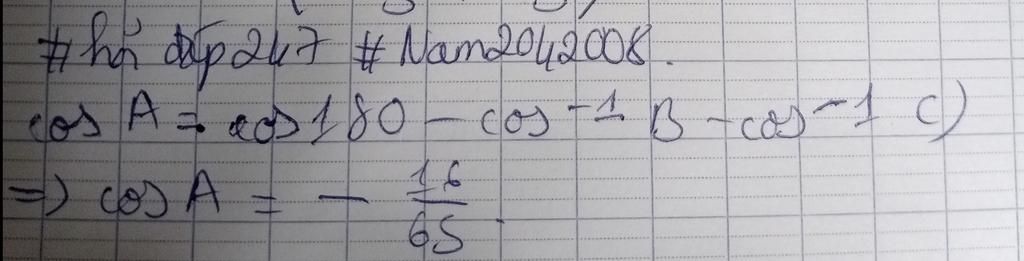 #hỏi đáp247 #Nam2042008.
cos A = cos180 - cos⁻¹ B - cos⁻¹ C)
=> cos A = - 16/65.